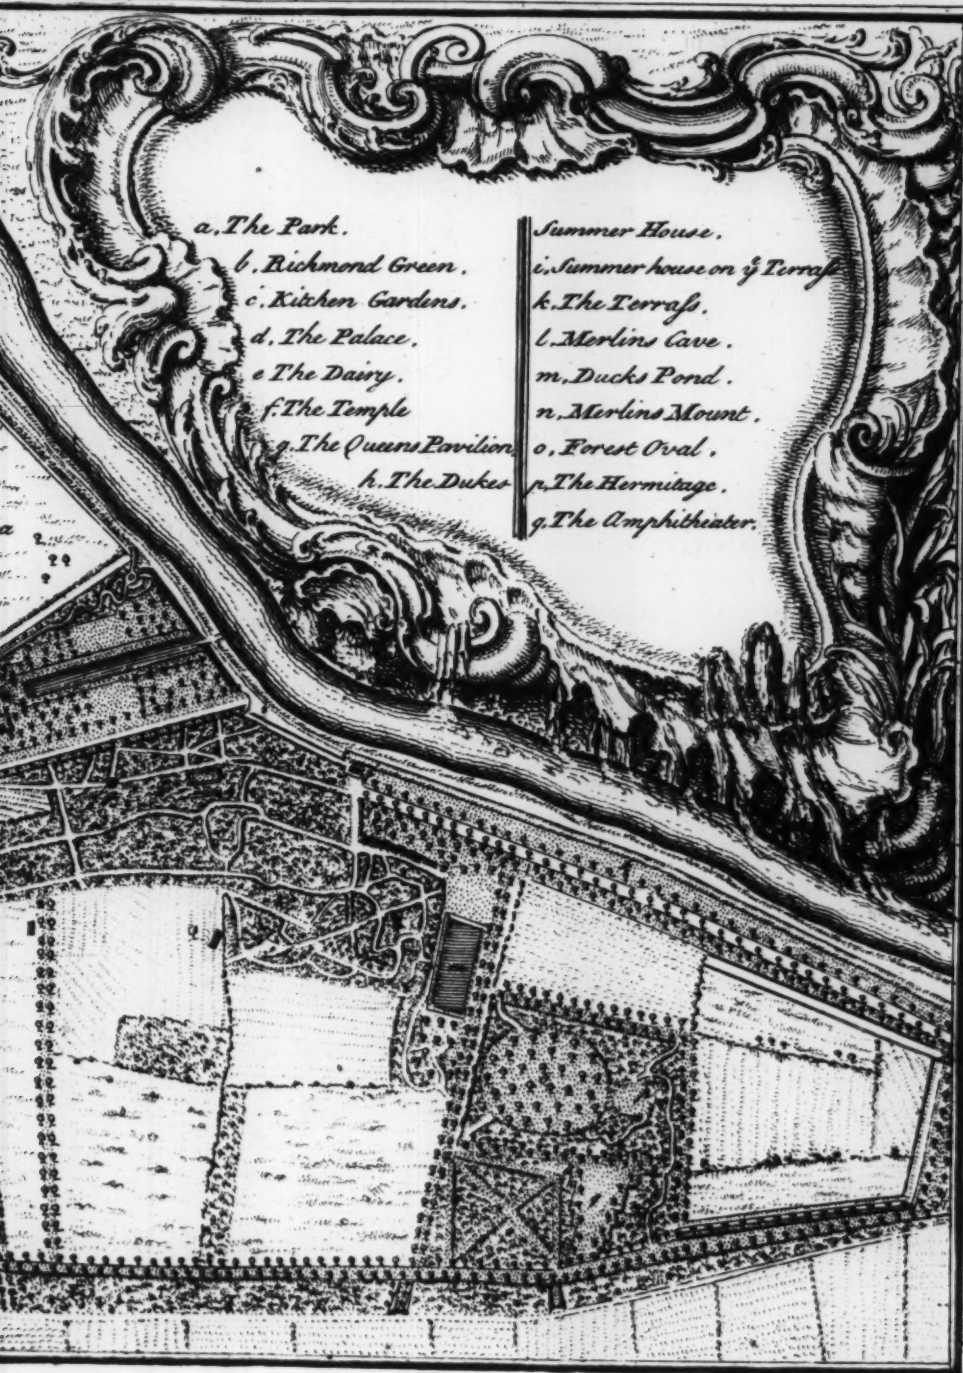 a. The Park.
b. Richmond Green.
c. Kitchen Gardens.
d. The Palace.
e The Dairy.
f. The Temple
g. The Queens Pavilion
h. The Dukes
Summer House.
i. Summer house on ye Terraſs
k. The Terraſs.
l. Merlins Cave.
m. Ducks Pond.
n. Merlins Mount.
o. Forest Oval.
p. The Hermitage.
q. The Amphitheater.
a